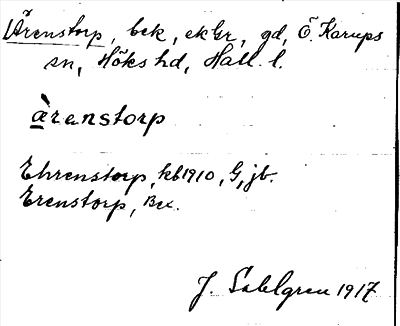 Ärenstorp, bek, ekbr, gd, Ö. Karups
sn, Höks hd, Hall. l.
ä̀renstorp
Ehrenstorp, kb 1910, G, jb.
Erenstorp, Bex.
J. Sahlgren 1917